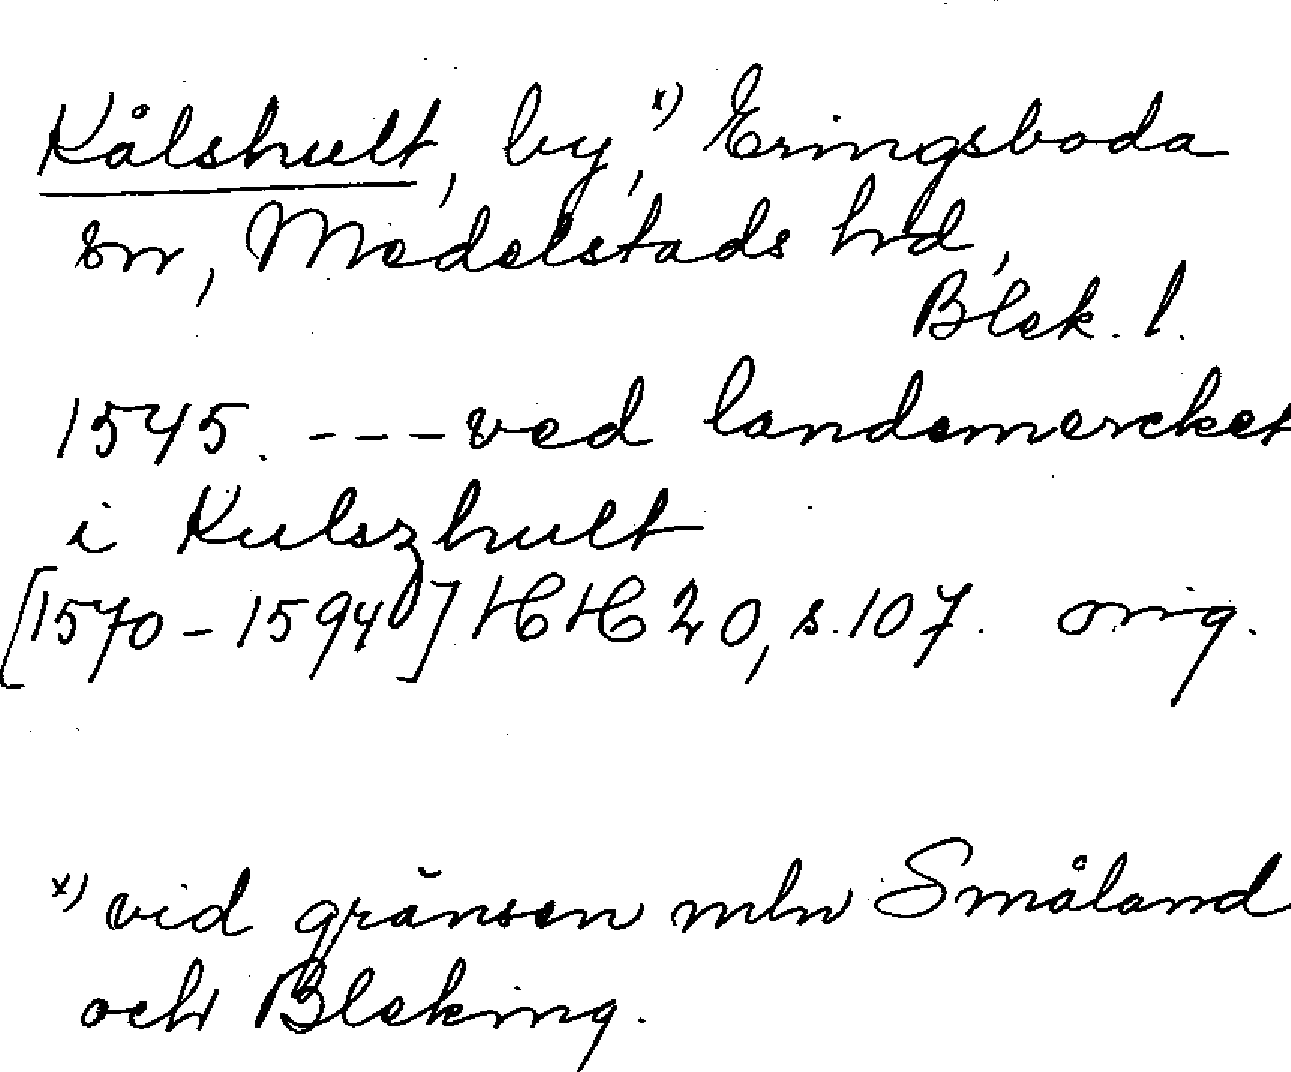 Kålshult, by,x) Eringsboda
sn, Medelstads hrd,
Blek. l.
1545. --- ved landemercket
i Kulszhult
[1570-1594] HH 20, s. 107. orig.
x) vid gränsen mln Småland
och Bleking.